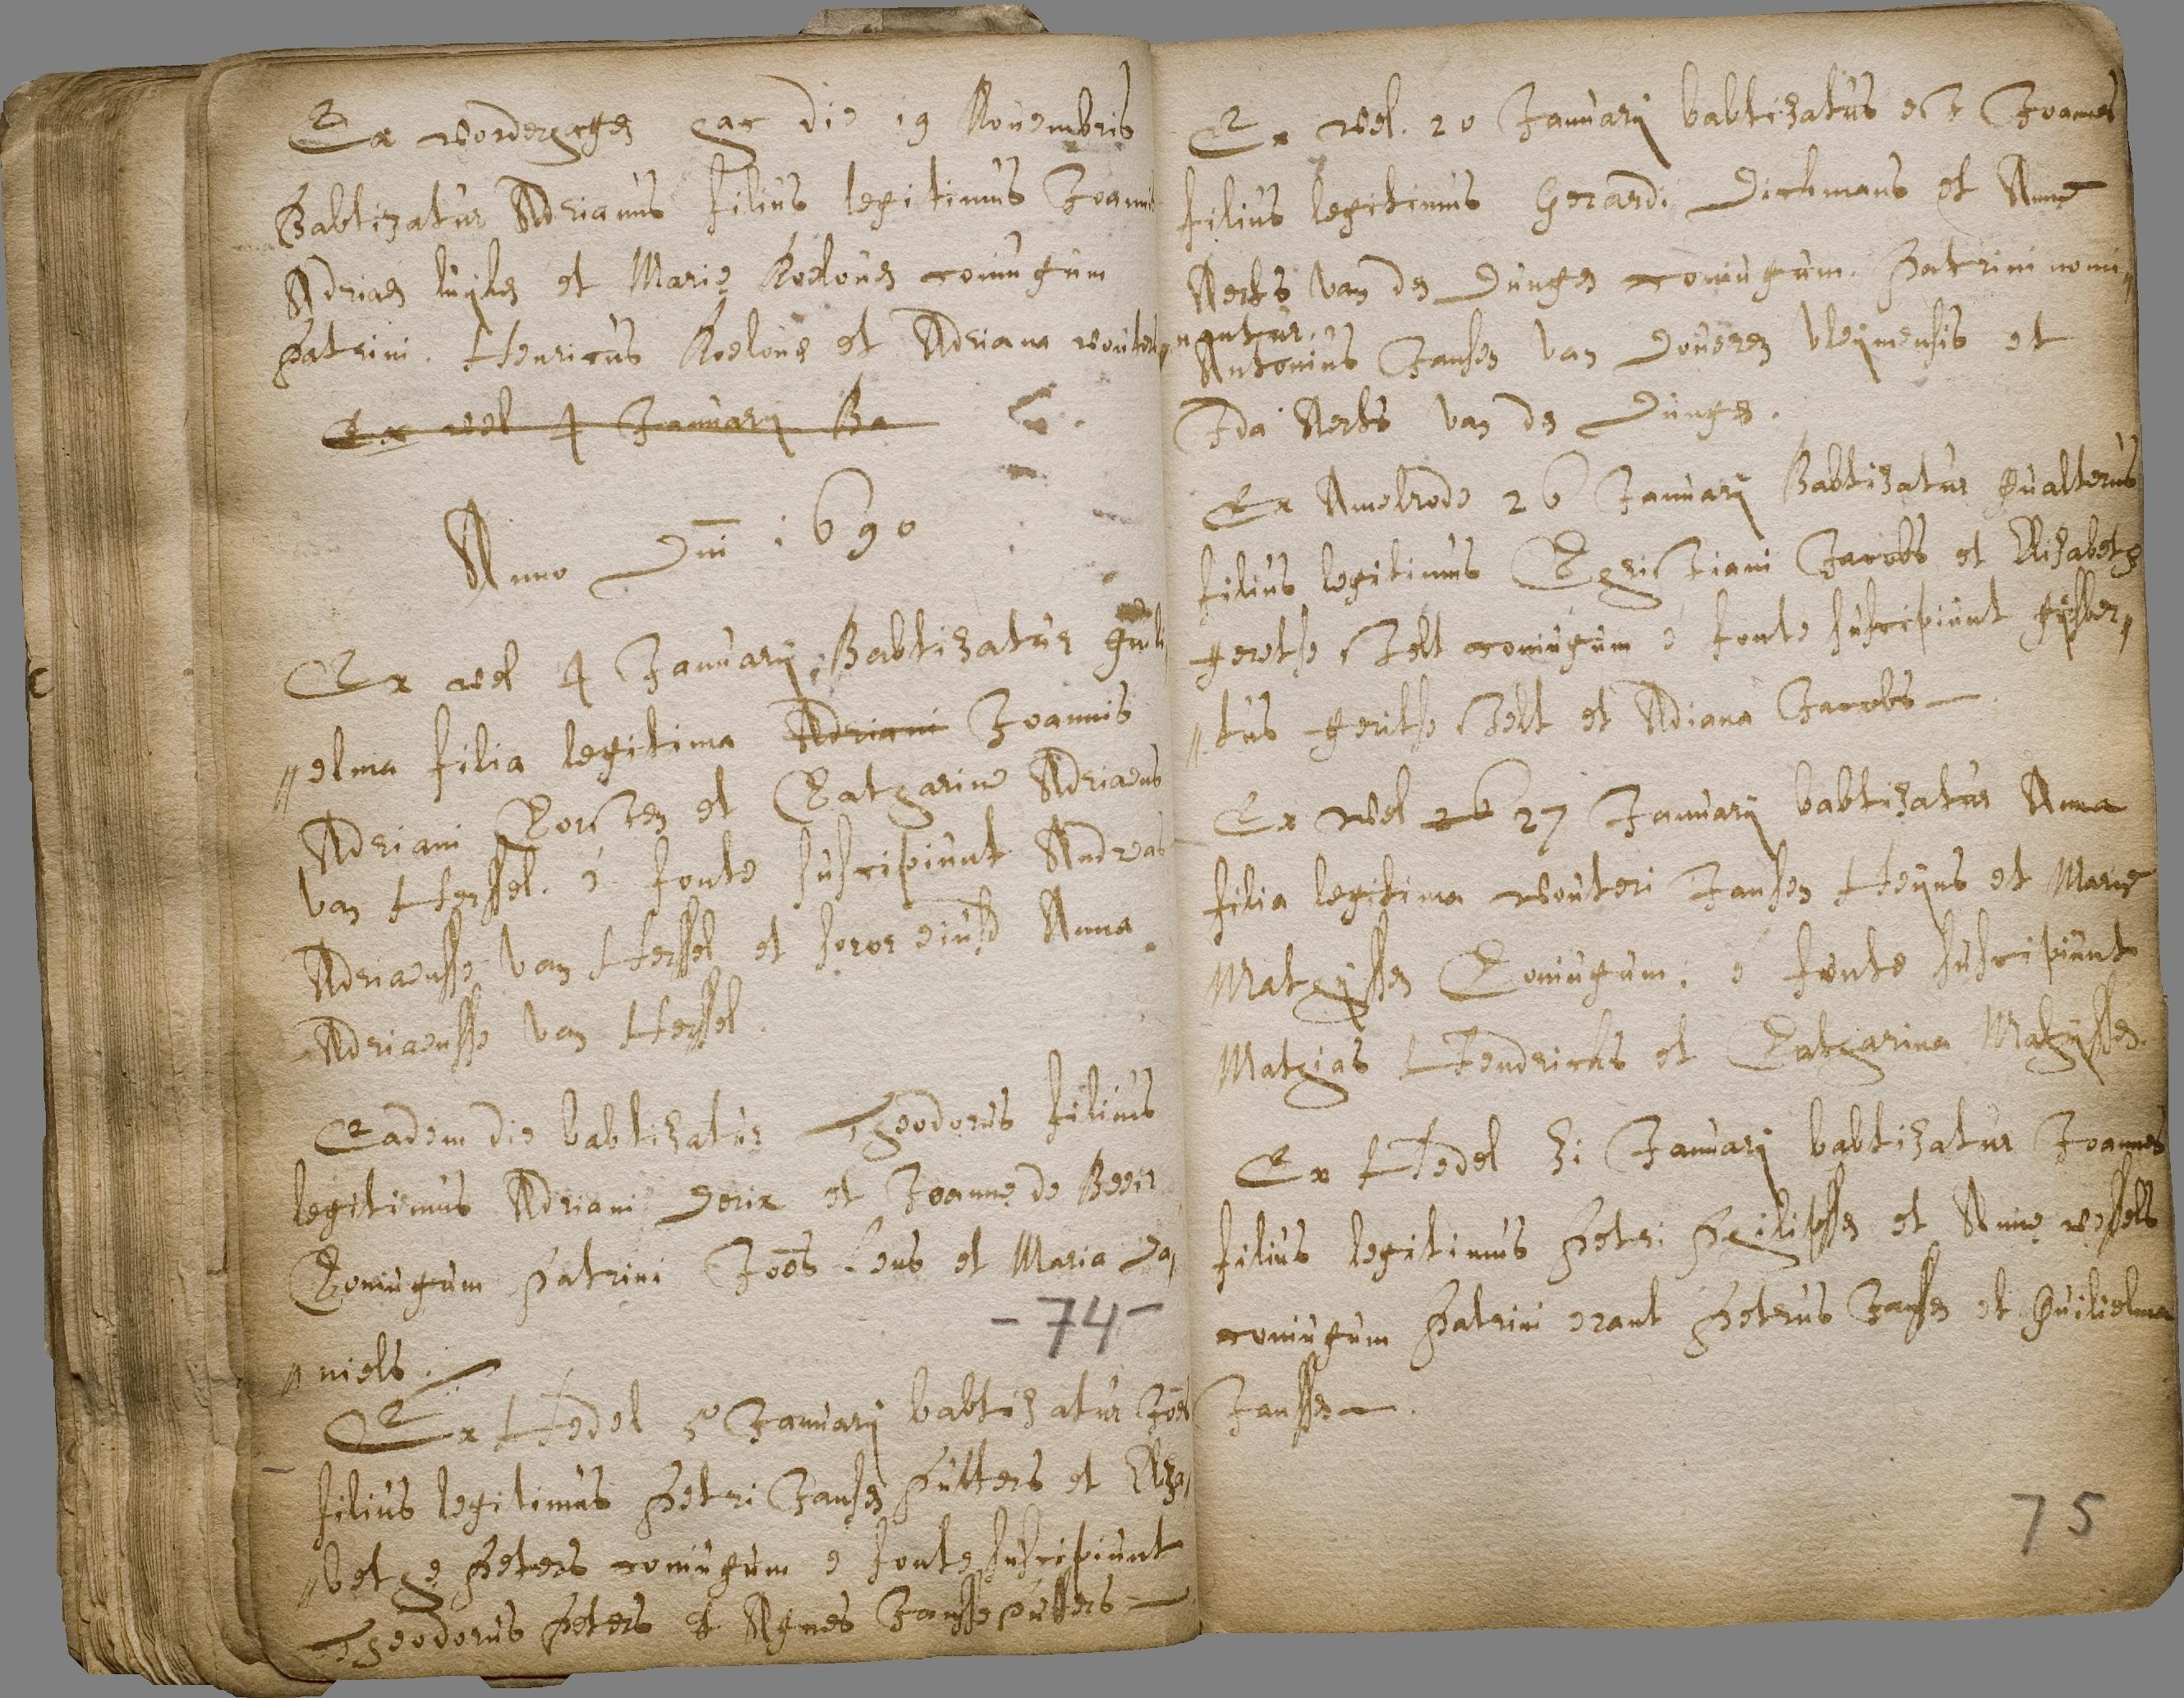 Ex Wordragen hac die 19 Nouembris
Babtizatur Adrianus filius legitimus Joannis
Adriaen luyken et Mariæ Roelouen coniugum
Patrini. Henricus Roeloue et Adriana wouters
Ex wel 4 Januarij Ba
Anno Dni 1690
Ex wel 4 Januarij Babtizatur guili
elma filia legitima Adriani Joannis
Adriani Corsten et Catharinæ Adriaens
van Hessel. é fonte suscipiunt Andreas
Adriaensse van Hessel et soror eiusd Anna
Adriaensse van Hessel.
Eadem die babtizatur Theodorus filius
legitimus Adriani Derix et Joannæ de Beeir
Coniugum patrini Joēs Lens et Maria Da,
niels.
-74-
Ex Hedel 5 Januarij babtizatur Joēs
filius legitimus Petri Jansen Putters et Eliza,
bethæ Peters coniugum e fonte suscipiunt
Theodorus Peters et Agnes Jansse putters
Ex wel. 20 Januarij babtizatus est Joannes
filius legitimus Gerardi Dickmans et Annæ
Aerts van den Dungen coniugum. Patrini nomi,
nantur.
Antonius Jansen van Doueren vleijmensis et
Ida Aerts van den Dungen.
Ex Amelrode 26 Januarij Babtizatur gualterus
filius legitimus Christiani Jacobs et Elizabeth
geretse Stelt coniugum é fonte suscipiunt gijsber,,
,,tus geritse Stelt et Adiana Jacobs
Ex wel 26 27 Januarij babtizatur Anna
filia legitima wouteri Jansen Heijns et Mariæ
Mathijssen Coniugum; é fonte suscipiunt
Mathias Hendricks et Catharina Mathijssen.
Ex Hedel 31 Januarij babtizatur Joannes
filius legitimus Petri Philipsen et Annæ wessels
coniugum Patrini erant Petrus Jansen et guilielma
Janssen.
75